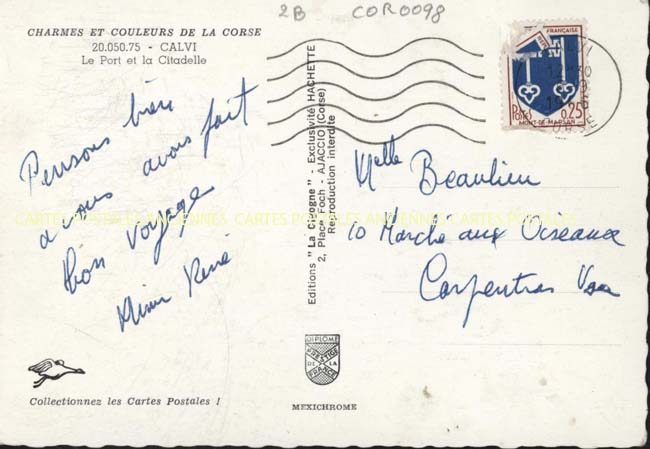 2B COR0098
CHARMES ET COULEURS DE LA CORSE
20.050.75 - CALVI
Le Port et la Citadelle
Pensons bien
a vous avons fait
bon voyage
René
Collectionnez les Cartes Postales !
Editions "La Cigogne" - Exclusivité HACHETTE
2, Place Foch - AJACCIO (Corse)
Reproduction interdite
DIPLOME
PRESTIGE
DE LA
FRANCE
MEXICHROME
FRANÇAISE
Postes 0,25
MONT-DE-MARSAN
CORSE
Melle Beaulieu
10 Marché aux Oiseaux
Carpentras
CARTES POSTALES ANCIENNES CARTES POSTALES ANCIENNES CARTES POSTALES